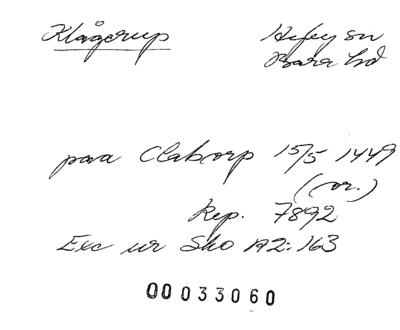 Klågerup Hyby sn
Bara hd
paa Claborp 15/5 1449
(or.)
Rep. 7892
Exc ur Sko A2:163
00 033060